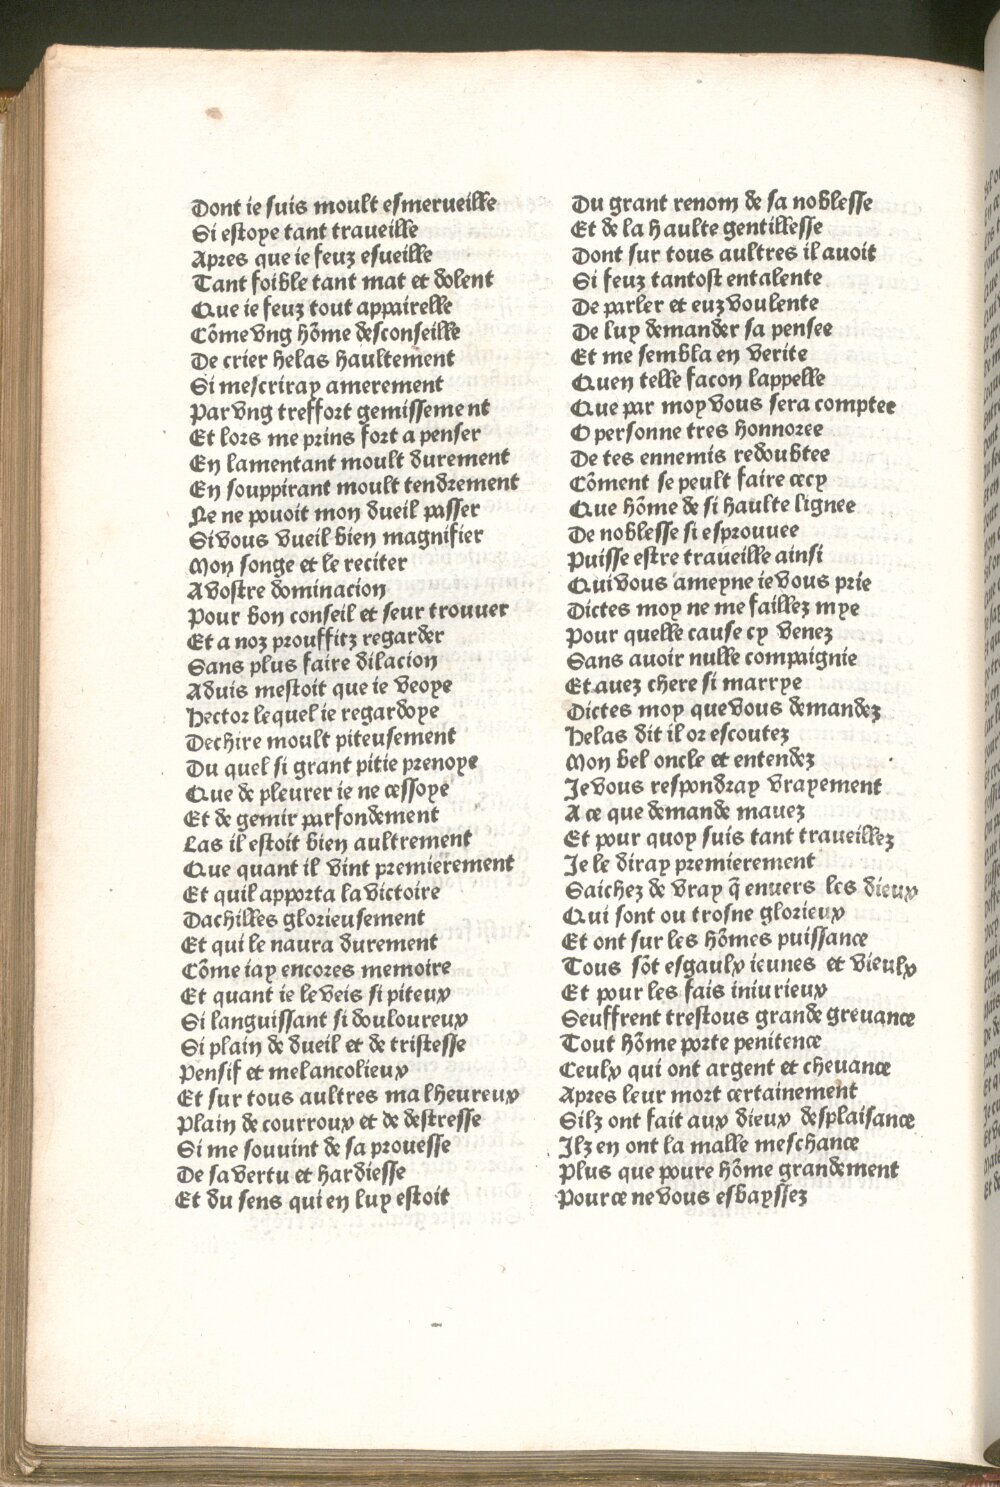 Dont ie suis moult esmerueille
Si estoye tant traueille
Apres que ie feuz esueille
Tant foible tant mat et dolent
Que ie feuz tout appairelle
Cõme vng hõme desconseille
De crier helas haultement
Si mescriray amerement
Par vng treffort gemissement
Et lors me prins fort a penser
En lamentant moult durement
En souppirant moult tendrement
Ne ne pouoit mon dueil passer
Si vous vueil bien magnifier
Mon songe et le reciter
A vostre dominacion
Pour bon conseil et seur trouuer
Et a noz prouffitz regarder
Sans plus faire dilacion
Aduis mestoit que ie veoye
Hector lequel ie regardoye
Dechire moult piteusement
Du quel si grant pitie prenoye
Que de pleurer ie ne cessoye
Et de gemir parfondement
Las il estoit bien aultrement
Que quant il vint premierement
Et quil apporta la victoire
Dachilles glorieusement
Et qui le naura durement
Cõme iay encores memoire
Et quant ie le veis si piteux
Si languissant si douloureux
Si plain de dueil et de tristesse
Pensif et melancolieux
Et sur tous aultres malheureux
Plain de courroux et de destresse
Si me souuint de sa prouesse
De sa vertu et hardiesse
Et du sens qui en luy estoit
Du grant renom de sa noblesse
Et de la haulte gentillesse
Dont sur tous aultres il auoit
Si feuz tantost entalente
De parler et euz voulente
De luy demander sa pensee
Et me sembla en verite
Quen telle facon lappelle
Que par moy vous sera comptee
O personne tres honnoree
De tes ennemis redoubtee
Cõment se peult faire cecy
Que hõme de si haulte lignee
De noblesse si esprouuee
Puisse estre traueille ainsi
Qui vous ameyne ie vous prie
Dictes moy ne me faillez mye
Pour quelle cause cy venez
Sans auoir nulle compaignie
Et auez chere si marrye
Dictes moy que vous demandez
Helas dit il or escoutez
Mon bel oncle et entendez
Je vous respondray vrayement
A ce que demande mauez
Et pour quoy suis tant traueillez
Je le diray premierement
Saichez de vray q̃ enuers les dieux
Qui sont ou trosne glorieux
Et ont sur les hõmes puissance
Tous sõt esgaulx ieunes et vieulx
Et pour les fais iniurieux
Seuffrent trestous grande greuance
Tout hõme porte penitence
Ceulx qui ont argent et cheuance
Apres leur mort certainement
Silz ont fait aux dieux desplaisance
Ilz en ont la malle meschance
Plus que poure hõme grandement
Pource ne vous esbayssez